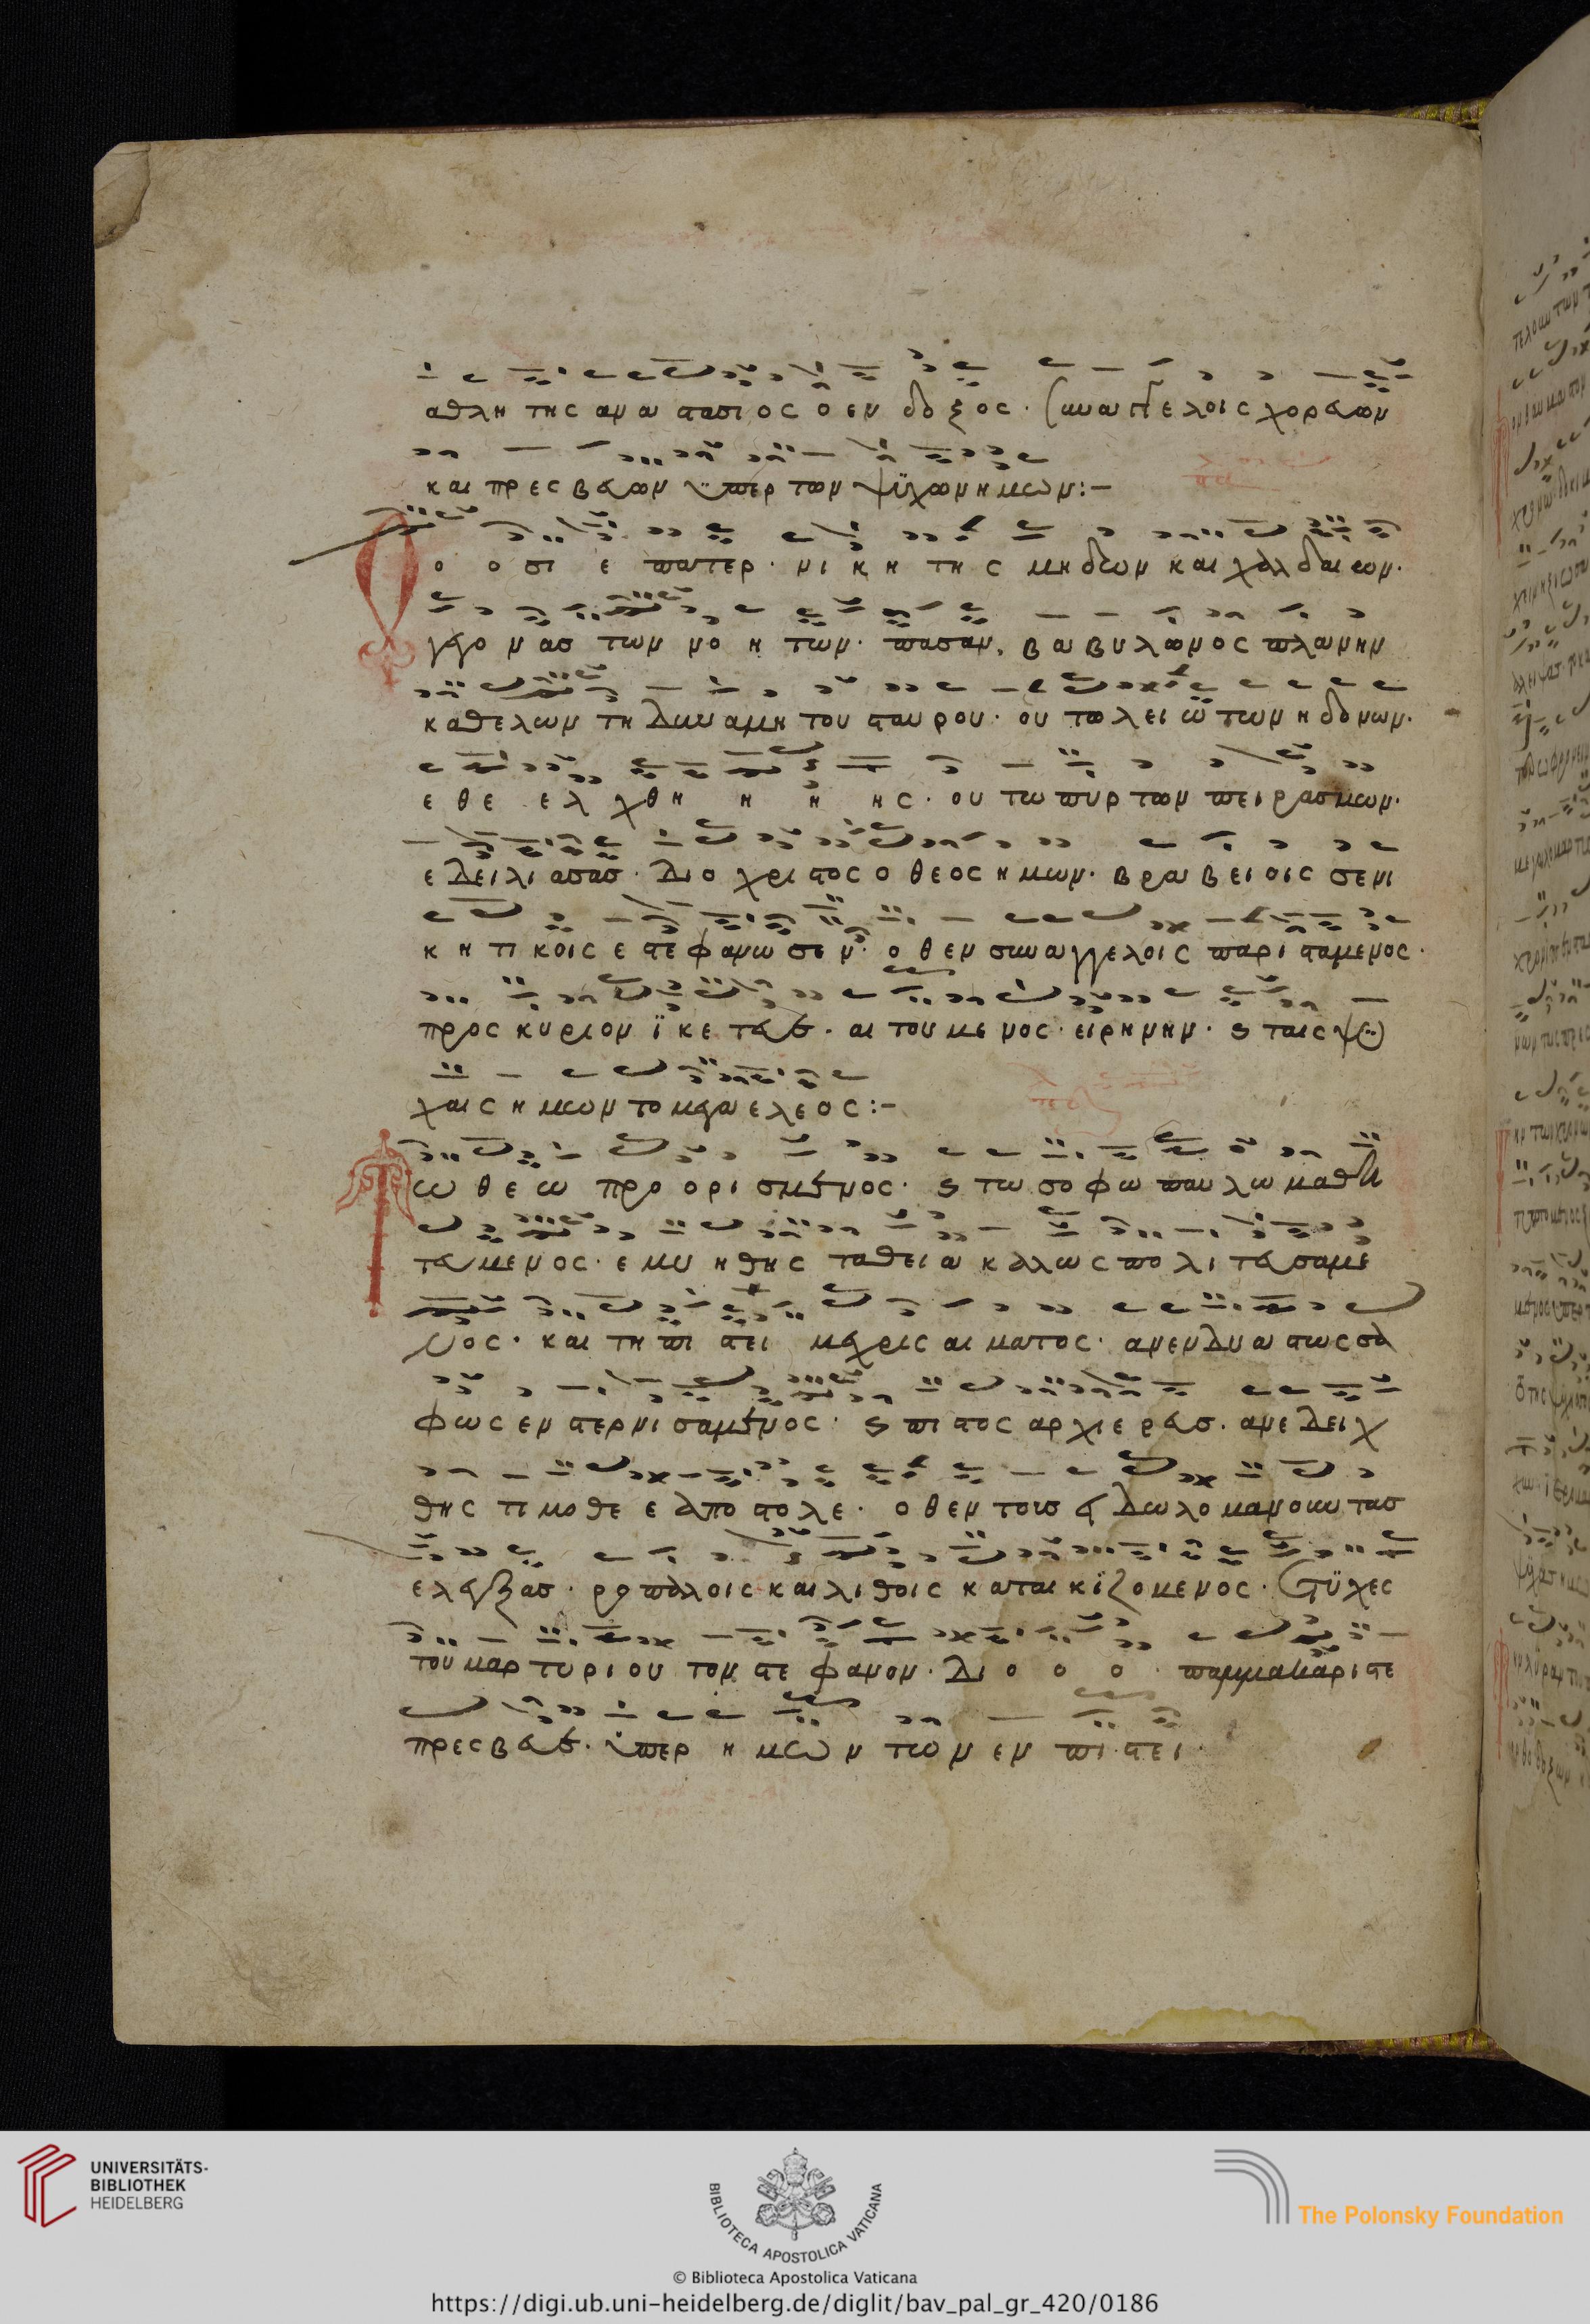 αθλητης αναστασιος ο ενδοξος · συν αγγελοις χορευων
και πρεσβευων υπερ των ψυχων ημων :-
Ο ο σι ε πατερ · νικητης μηδων και χαλδαιων ·
γεγονασ των νοητων · πασαν, βαβυλωνος πλανην
καθελων τη δυναμη του σταυρου · ου τω λειω των ηδονων ·
εθελχθη η η ης · ου τω πυρ των πειρασμων ·
εδειλιασασ · διο χριστος ο θεος ημων · βραβειοις σε νι
κητικοις εστεφανωσεν · οθεν συν αγγελοις παρισταμενος ·
προς κυριον ϊκετευε · αιτουμενος · ειρηνην · ϛ ταις ψυ
χαις ημων το μεγα ελεος :-
Τω θεω προορισμενος · ϛ τω σοφω παυλω μαθη
τευμενος · εμυηθης τα θεια καλως πολιτευσαμε
νος · και τη πιστει μεχρις αιματος · ανενδυαστως σα
φως ενστερνισαμενος · ϛ πιστος αρχιερευσ · ανεδειχ
θης τιμοθεε αποστολε · οθεν τουσ ειδωλομανουντασ
ελεγξασ · ροπαλοις και λιθοις καταικϊζομενος · ετϋχες
του μαρτυριου τον στεφανον · διο ο ο · παμμακαριστε
πρεσβευε · υπερ ημων των εν πιστει
UNIVERSITÄTS-
BIBLIOTHEK
HEIDELBERG
BIBLIOTECA APOSTOLICA VATICANA
The Polonsky Foundation
© Biblioteca Apostolica Vaticana
https://digi.ub.uni-heidelberg.de/diglit/bav_pal_gr_420/0186